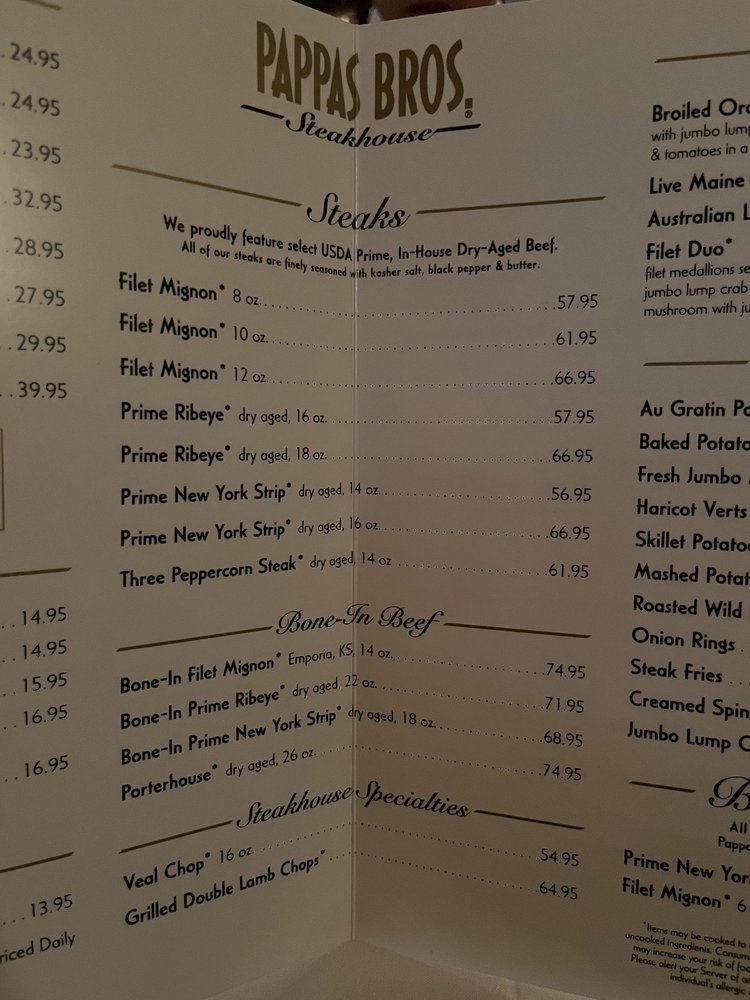 . 24.95
. 24.95
. 23.95
. 32.95
. 28.95
. 27.95
. 29.95
. . 39.95
. . 14.95
. . 14.95
. . 15.95
. . 16.95
. . 16.95
. . . 13.95
Daily
PAPPAS BROS.®
Steakhouse
Steaks
We proudly feature select USDA Prime, In-House Dry-Aged Beef.
All of our steaks are finely seasoned with kosher salt, black pepper & butter.
Filet Mignon* 8 oz. 57.95
Filet Mignon* 10 oz. 61.95
Filet Mignon* 12 oz. 66.95
Prime Ribeye* dry aged, 16 oz. 57.95
Prime Ribeye* dry aged, 18 oz. 66.95
Prime New York Strip* dry aged, 14 oz. 56.95
Prime New York Strip* dry aged, 16 oz. 66.95
Three Peppercorn Steak* dry aged, 14 oz 61.95
Bone-In Beef
Bone-In Filet Mignon* Emporia, KS, 14 oz. 74.95
Bone-In Prime Ribeye* dry aged, 22 oz. 71.95
Bone-In Prime New York Strip* dry aged, 18 oz. 68.95
Porterhouse* dry aged, 26 oz. 74.95
Steakhouse Specialties
Veal Chop* 16 oz. 54.95
Grilled Double Lamb Chops* 64.95
Broiled
with jumbo
& tomatoes in a
Live Maine
Australian
Filet Duo*
filet medallions
jumbo lump crab
mushroom with
Au Gratin
Baked
Fresh Jumbo
Haricot Verts
Skillet
Mashed
Roasted Wild
Onion Rings .
Steak Fries . . .
Creamed
Jumbo Lump
All
Prime New
Filet Mignon* 6
*Items may be cooked to
uncooked ingredients.
may increase your risk of
Please alert your Server of
individual's allergic